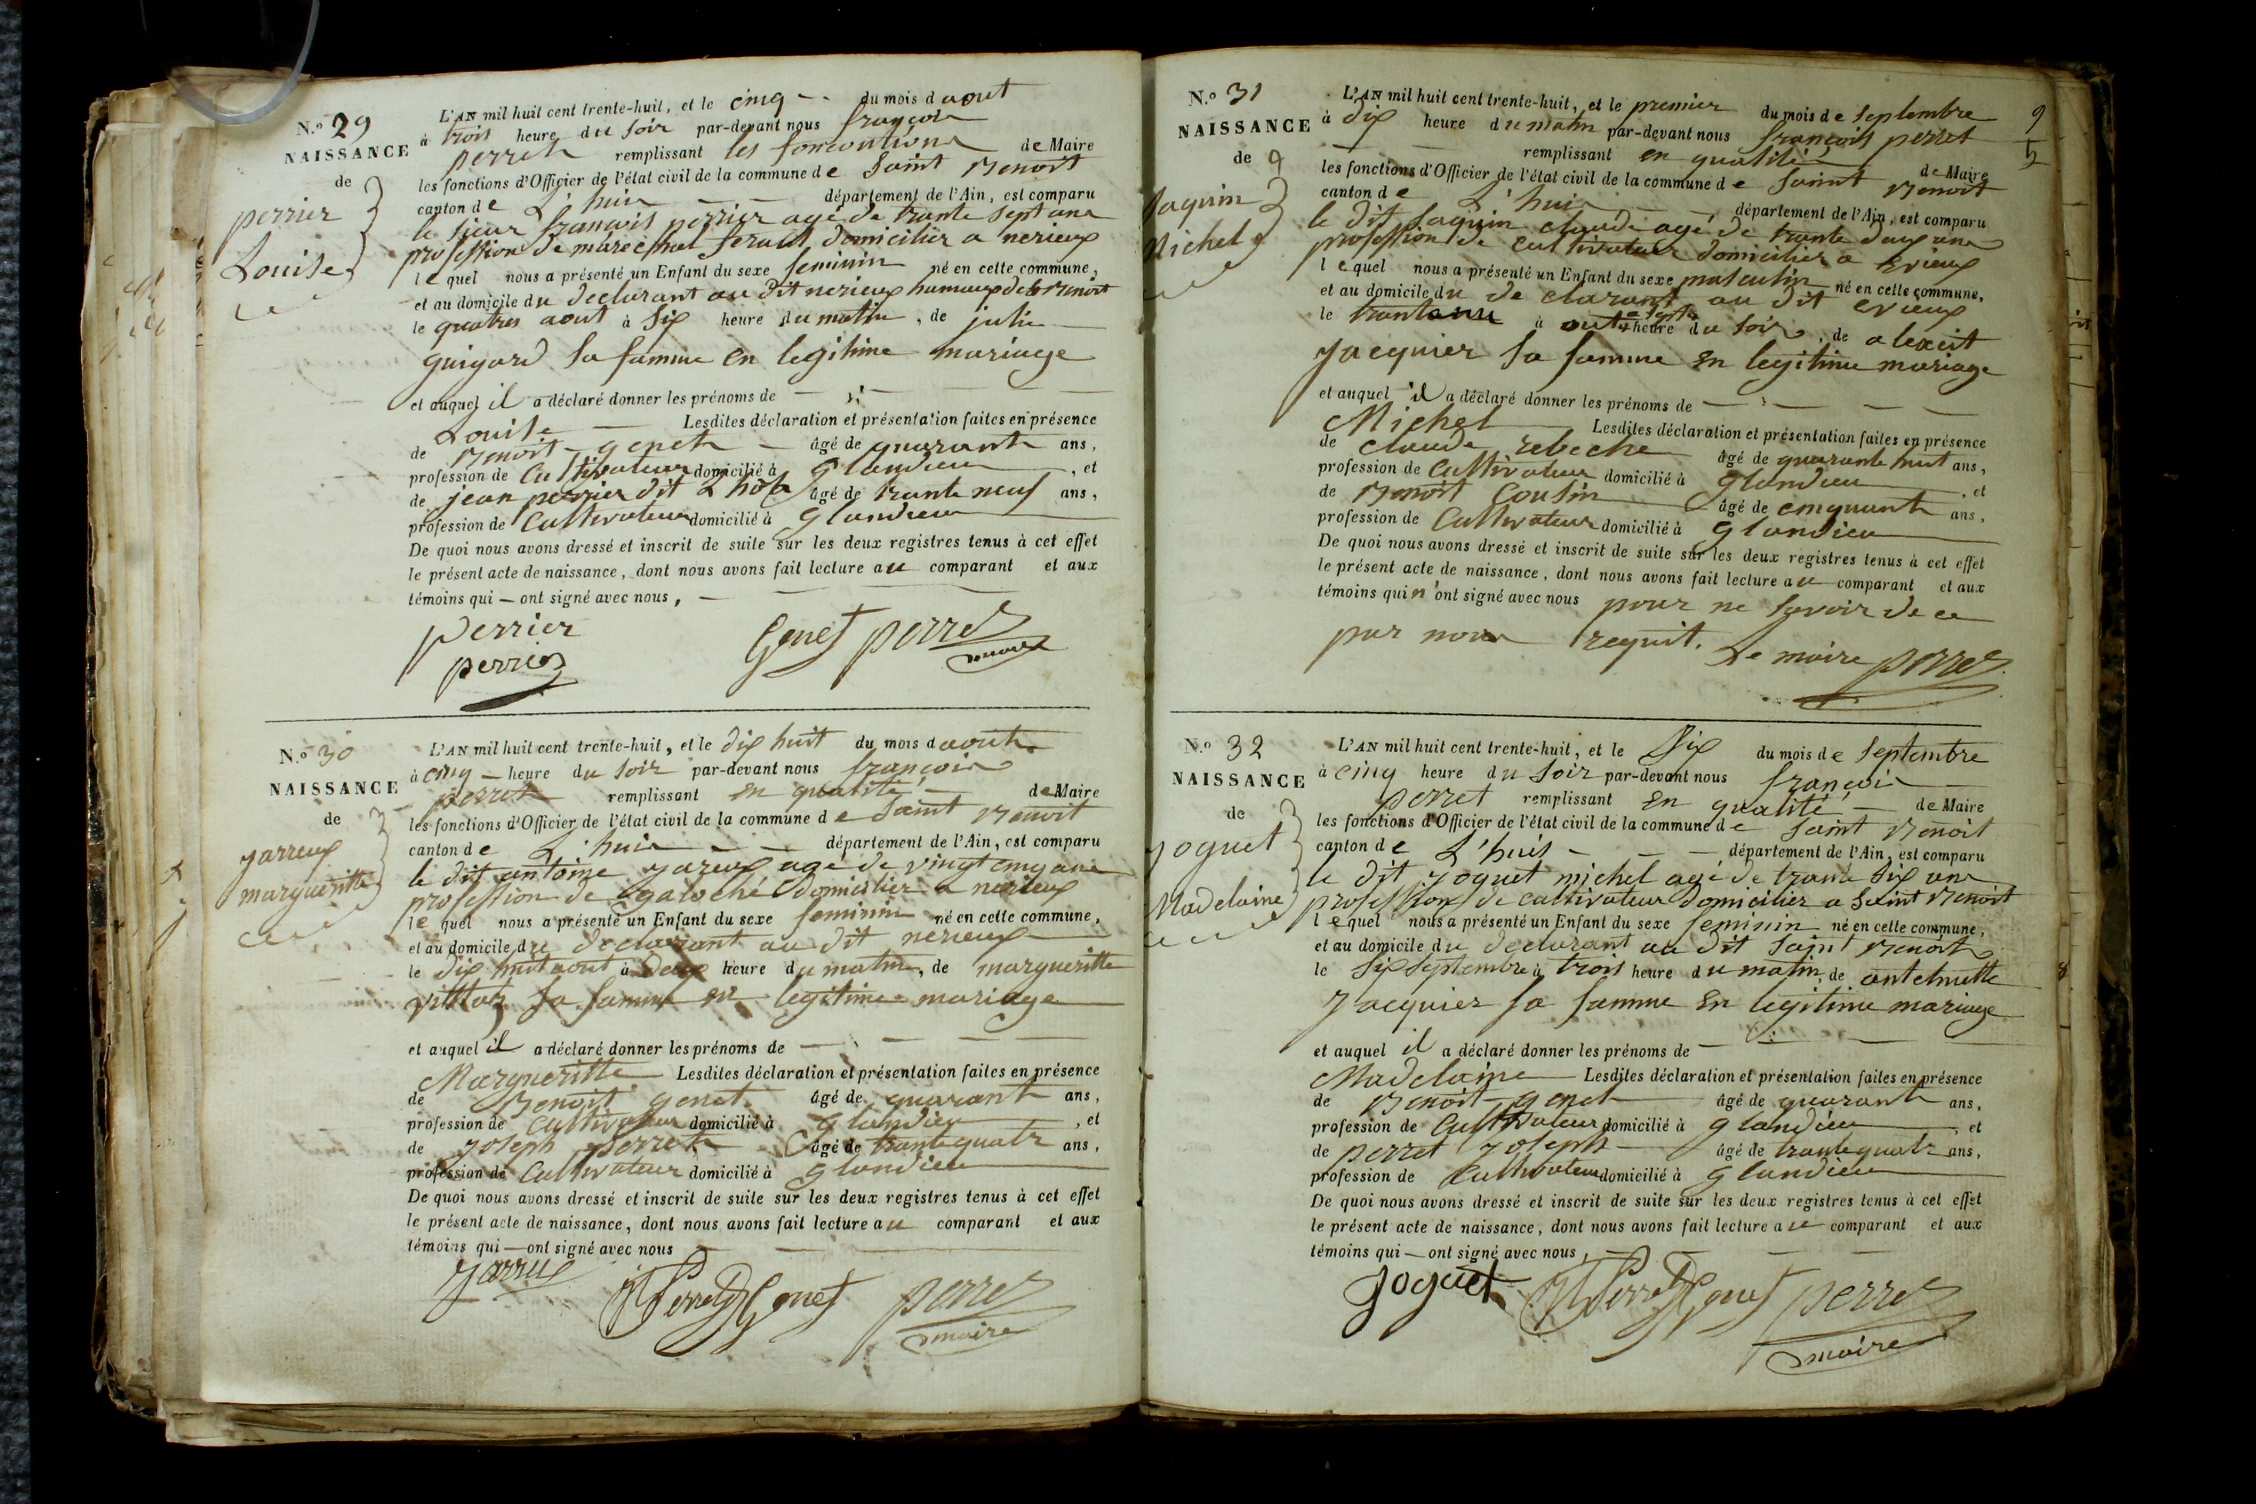 N.o 29
NAISSANCE
de
perrier
Louise
L'AN mil huit cent trente-huit, et le cinq du mois d aout
à trois heure du soir par-devant nous françois
perret remplissant les de Maire
les fonctions d'Officier de l'état civil de la commune de Saint Benoit
canton de L'huis département de l'Ain, est comparu
le sieur françois perrier agé de trante sept ans
profession de marechal ferant domicilier a nerieux
lequel nous a présenté un Enfant du sexe feminin né en cette commune,
et au domicile du declarant au dit nerieux hamaux de St Benoit
le quatres aout à six heure du matin, de julie
guigard sa famme en legitime mariage
et auquel il a déclaré donner les prénoms de
Louise Lesdites déclaration et présentation faites en présence
de Benoit genet âgé de quarante ans,
profession de Cultivateur domicilié à glandieu, et
de jean perrier dit âgé de trante neuf ans,
profession de Cultivateur domicilié à glandieu
De quoi nous avons dressé et inscrit de suite sur les deux registres tenus à cet effet
le présent acte de naissance, dont nous avons fait lecture au comparant et aux
témoins qui — ont signé avec nous,
perrier Genet perret
perrier maire
N.o 30
NAISSANCE
de
jarreux
margueritte
L'AN mil huit cent trente-huit, et le dix huit du mois d aout
à cinq heure du soir par-devant nous françois
perret remplissant en qualité de Maire
les fonctions d'Officier de l'état civil de la commune de Saint Benoit
canton de L'huis département de l'Ain, est comparu
le dit antoine jareux agé de vingt cinq ans
profession de galoché domicilier a nerieux
lequel nous a présenté un Enfant du sexe feminin né en cette commune,
et au domicile du declarant au dit nerieux
le dix huit aout à Deux heure du matin, de margueritte
sa famme en legitime mariage
et auquel il a déclaré donner les prénoms de
Margueritte Lesdites déclaration et présentation faites en présence
de Benoit genet âgé de quarante ans,
profession de Cultivateur domicilié à glandieu, et
de joseph perret âgé de trante quatr ans,
profession de Cultivateur domicilié à glandieu
De quoi nous avons dressé et inscrit de suite sur les deux registres tenus à cet effet
le présent acte de naissance, dont nous avons fait lecture au comparant et aux
témoins qui — ont signé avec nous
Jarrux Perret Genet perret
maire
N.o 31
NAISSANCE
de
Jaquin
Michel
95
L'AN mil huit cent trente-huit, et le premier du mois de septembre
à dix heure du matin par-devant nous françois perret
remplissant en qualité de Maire
les fonctions d'Officier de l'état civil de la commune de Saint Benoit
canton de L'huis département de l'Ain, est comparu
le dit Jaquin claude agé de trante deux ans
profession de cultivateur domicilier a Evieux
lequel nous a présenté un Enfant du sexe masculin né en cette commune,
et au domicile du declarant au dit evieux
le trante un à aout a sept heure du soir, de alexcit
jacquier sa famme en legitime mariage
et auquel il a déclaré donner les prénoms de
Michel Lesdites déclaration et présentation faites en présence
de claude rebeche âgé de quarante huit ans,
profession de Cultivateur domicilié à glandieu, et
de Benoit Cousin âgé de cinquante ans,
profession de Cultivateur domicilié à glandieu
De quoi nous avons dressé et inscrit de suite sur les deux registres tenus à cet effet
le présent acte de naissance, dont nous avons fait lecture au comparant et aux
témoins qui n'ont signé avec nous pour ne savoir de ce
par nous requit. Le maire perret
N.o 32
NAISSANCE
de
joguet
Madelaine
L'AN mil huit cent trente-huit, et le Six du mois de septembre
à cinq heure du soir par-devant nous françois
perret remplissant en qualité de Maire
les fonctions d'Officier de l'état civil de la commune de Saint Benoit
canton de L'huis département de l'Ain, est comparu
le dit joguet michel agé de trante six ans
profession de cultivateur domicilier a Saint Benoit
lequel nous a présenté un Enfant du sexe feminin né en cette commune,
et au domicile du declarant au dit Saint Benoit
le Six septembre à trois heure du matin, de antelmette
jacquier sa famme en legitime mariage
et auquel il a déclaré donner les prénoms de
Madelaine Lesdites déclaration et présentation faites en présence
de Benoit genet âgé de quarante ans,
profession de Cultivateur domicilié à glandieu, et
de perret joseph âgé de trante quatr ans,
profession de Cultivateur domicilié à glandieu
De quoi nous avons dressé et inscrit de suite sur les deux registres tenus à cet effet
le présent acte de naissance, dont nous avons fait lecture au comparant et aux
témoins qui — ont signé avec nous,
Joguet Perret Genet perret
maire